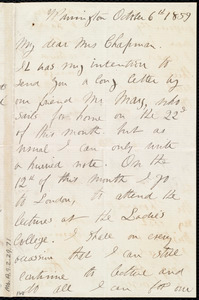 Warrington October 6th 1859
My dear Mrs Chapman.
It was my intention to
send you a long letter by
our friend Mr May, who
sails for home on the 22d
of this month but as
usual I can only write
a hurried note. On the
12th of this month I go
to London, to attend the
lectures at the Ladies
College. I shall on every
occasion that I can still
continue to lecture and
do all I can for our